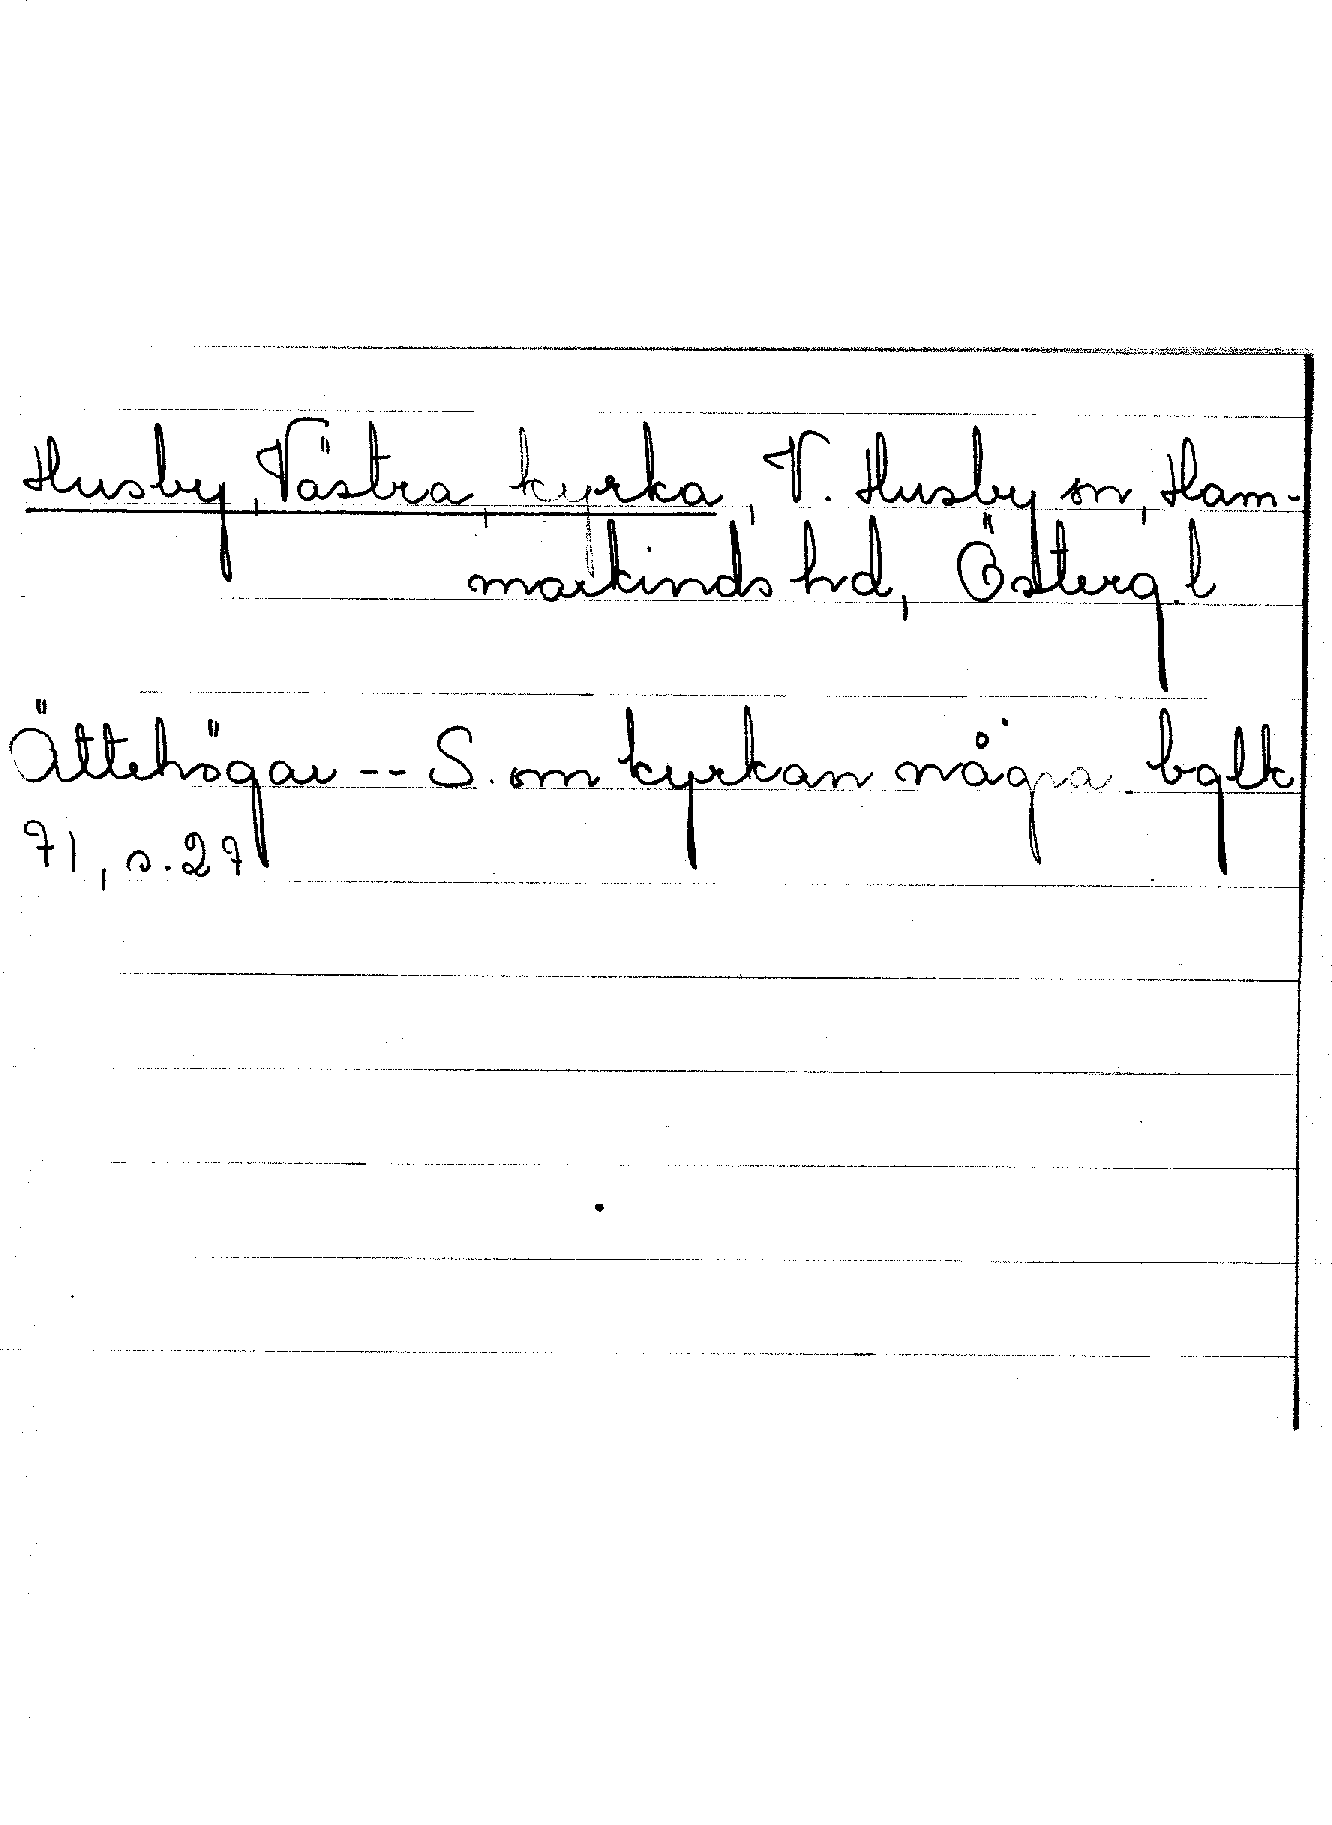 Husby, Västra, kyrka, V. Husby sn, Ham-
markinds hd, Österg. l
Ättehögar -- S. om kyrkan några. bglk
71, s. 27